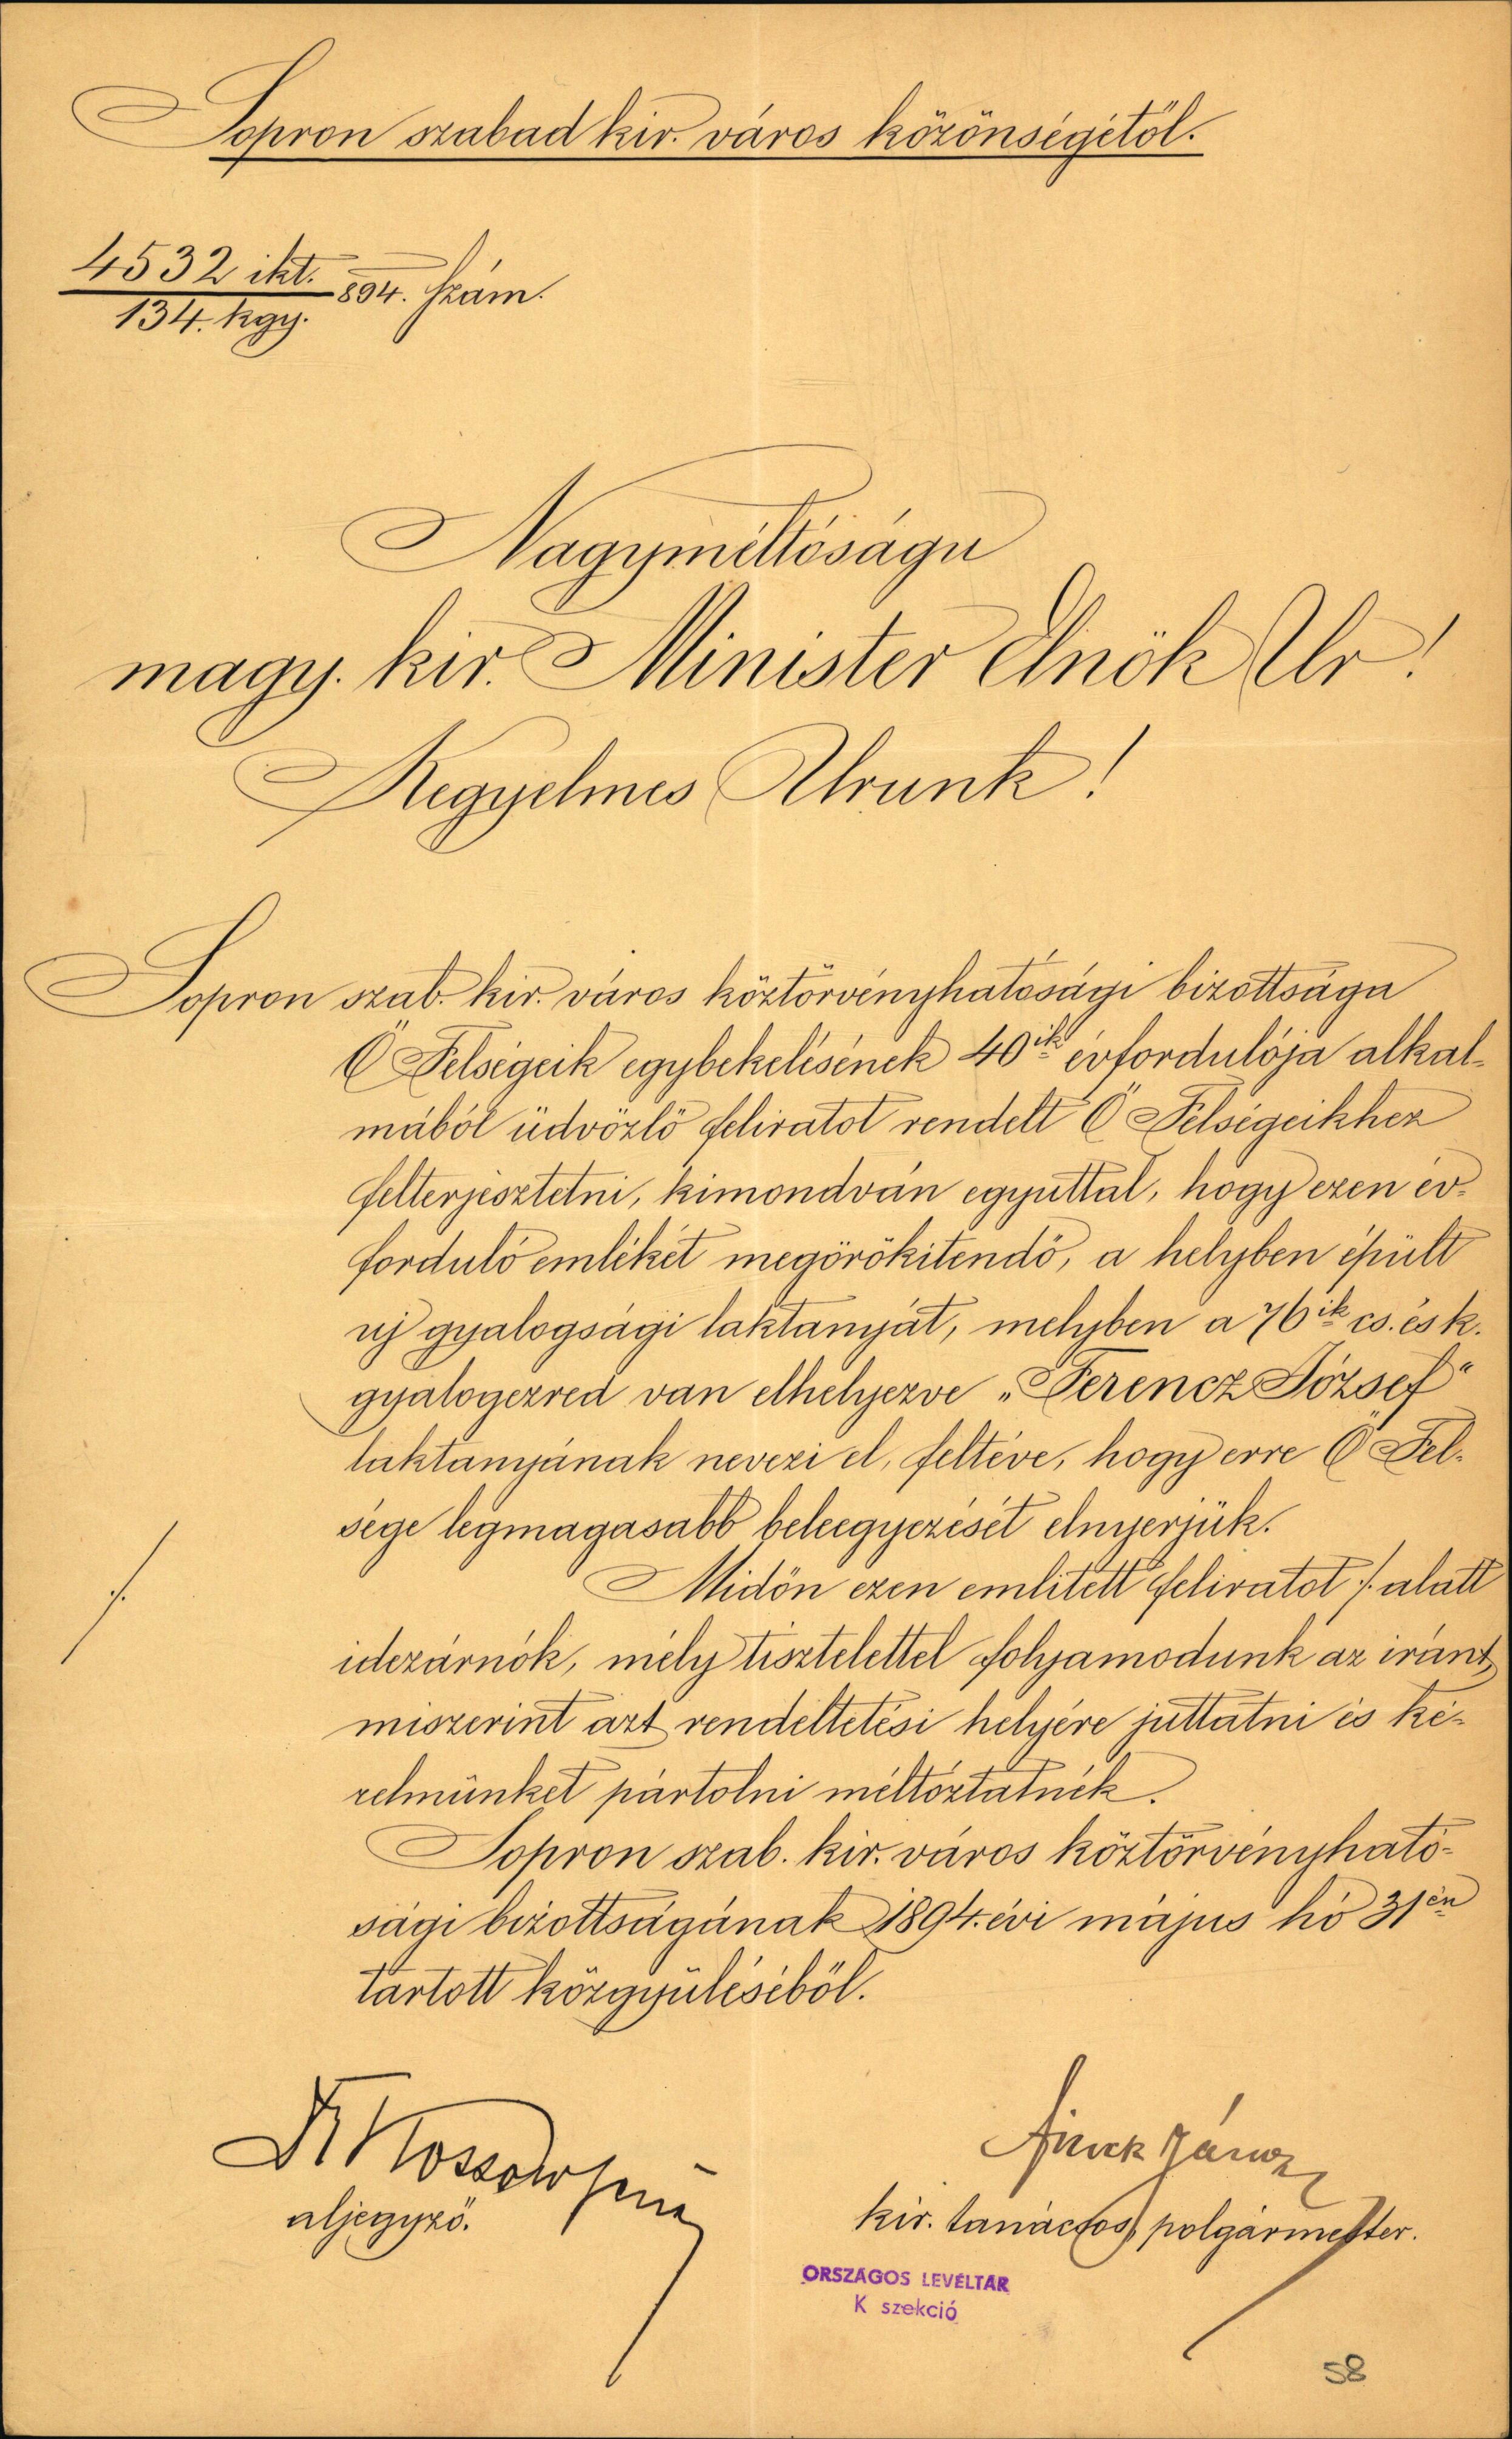 Sopron szabad kir. város közönségétől.
4532 ikt. / 134. kgy. 894. szám.
Nagyméltóságu
magy. kir. Minister Elnök Ur!
Kegyelmes Urunk!
Sopron szab. kir. város köztörvényhatósági bizottsága
Ő Felségeik egybekelésének 40ik évfordulója alkal-
mából üdvözlő feliratot rendelt Ő Felségeikhez
felterjesztetni, kimondván egyuttal, hogy ezen év-
forduló emlékét megörökitendő, a helyben épült
uj gyalogsági laktanyát, melyben a 76ik cs. és k.
gyalogezred van elhelyezve „Ferencz József"
laktanyának nevezi el, feltéve, hogy erre Ő Fel-
sége legmagasabb beleegyezését elnyerjük.
Midőn ezen emlitett feliratot ./. alatt
idezárnók, mély tisztelettel folyamodunk az iránt,
miszerint azt rendeltetési helyére juttatni és ké-
relmünket pártolni méltóztatnék.
Sopron szab. kir. város köztörvényható-
sági bizottságának 1894. évi május hó 31én
tartott közgyüléséből.
aljegyző.
Finck János
kir. tanácsos, polgármester.
ORSZÁGOS LEVÉLTÁR
K szekció
58